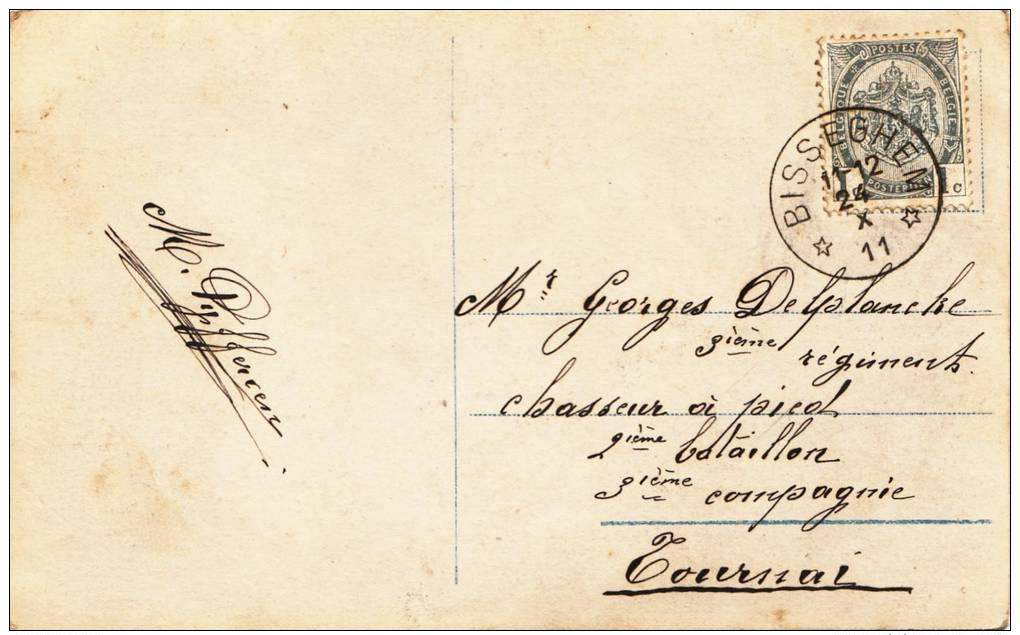 POSTES
BELGIQUE
BELGIE
POSTERIJEN
1c
BISSEGHEM
11-12
24
X
11
Mr Georges Delplancke
3ième régiment.
chasseur à pied
2ième bataillon
3ième compagnie
Tournai
M.